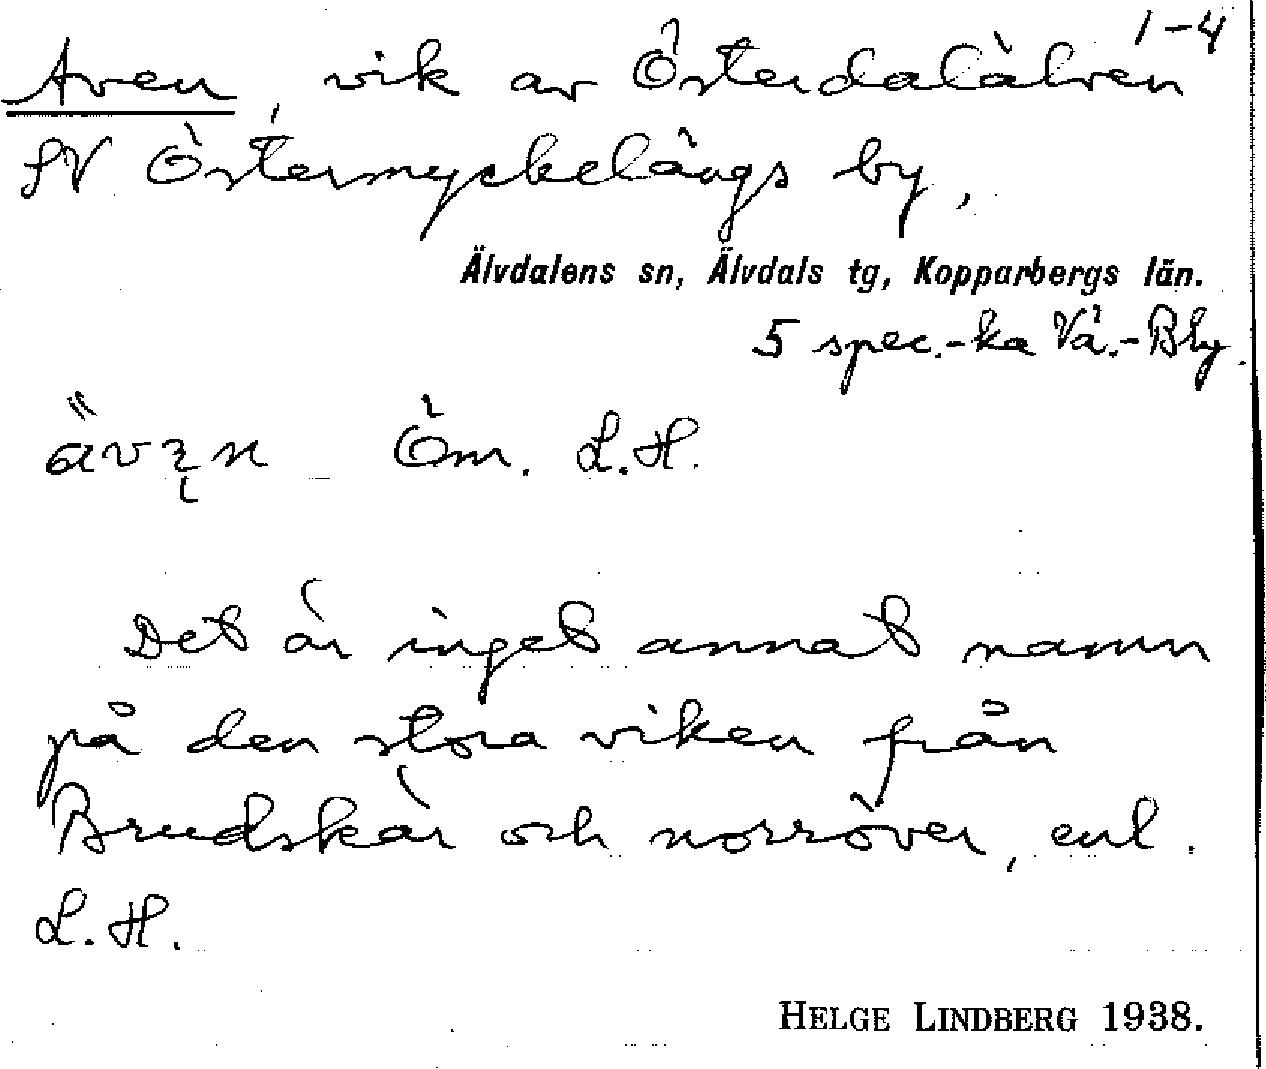 1-4
Aven, vik av Österdalälven
SV Östermyckelängs by,
Älvdalens sn, Älvdals tg, Kopparbergs län.
5 spec.-ka Vå.-Bly.
Öm. L.H.
Det är inget annat namn
på den stora viken från
Brudskär och norröver, enl.
L.H.
HELGE LINDBERG 1938.